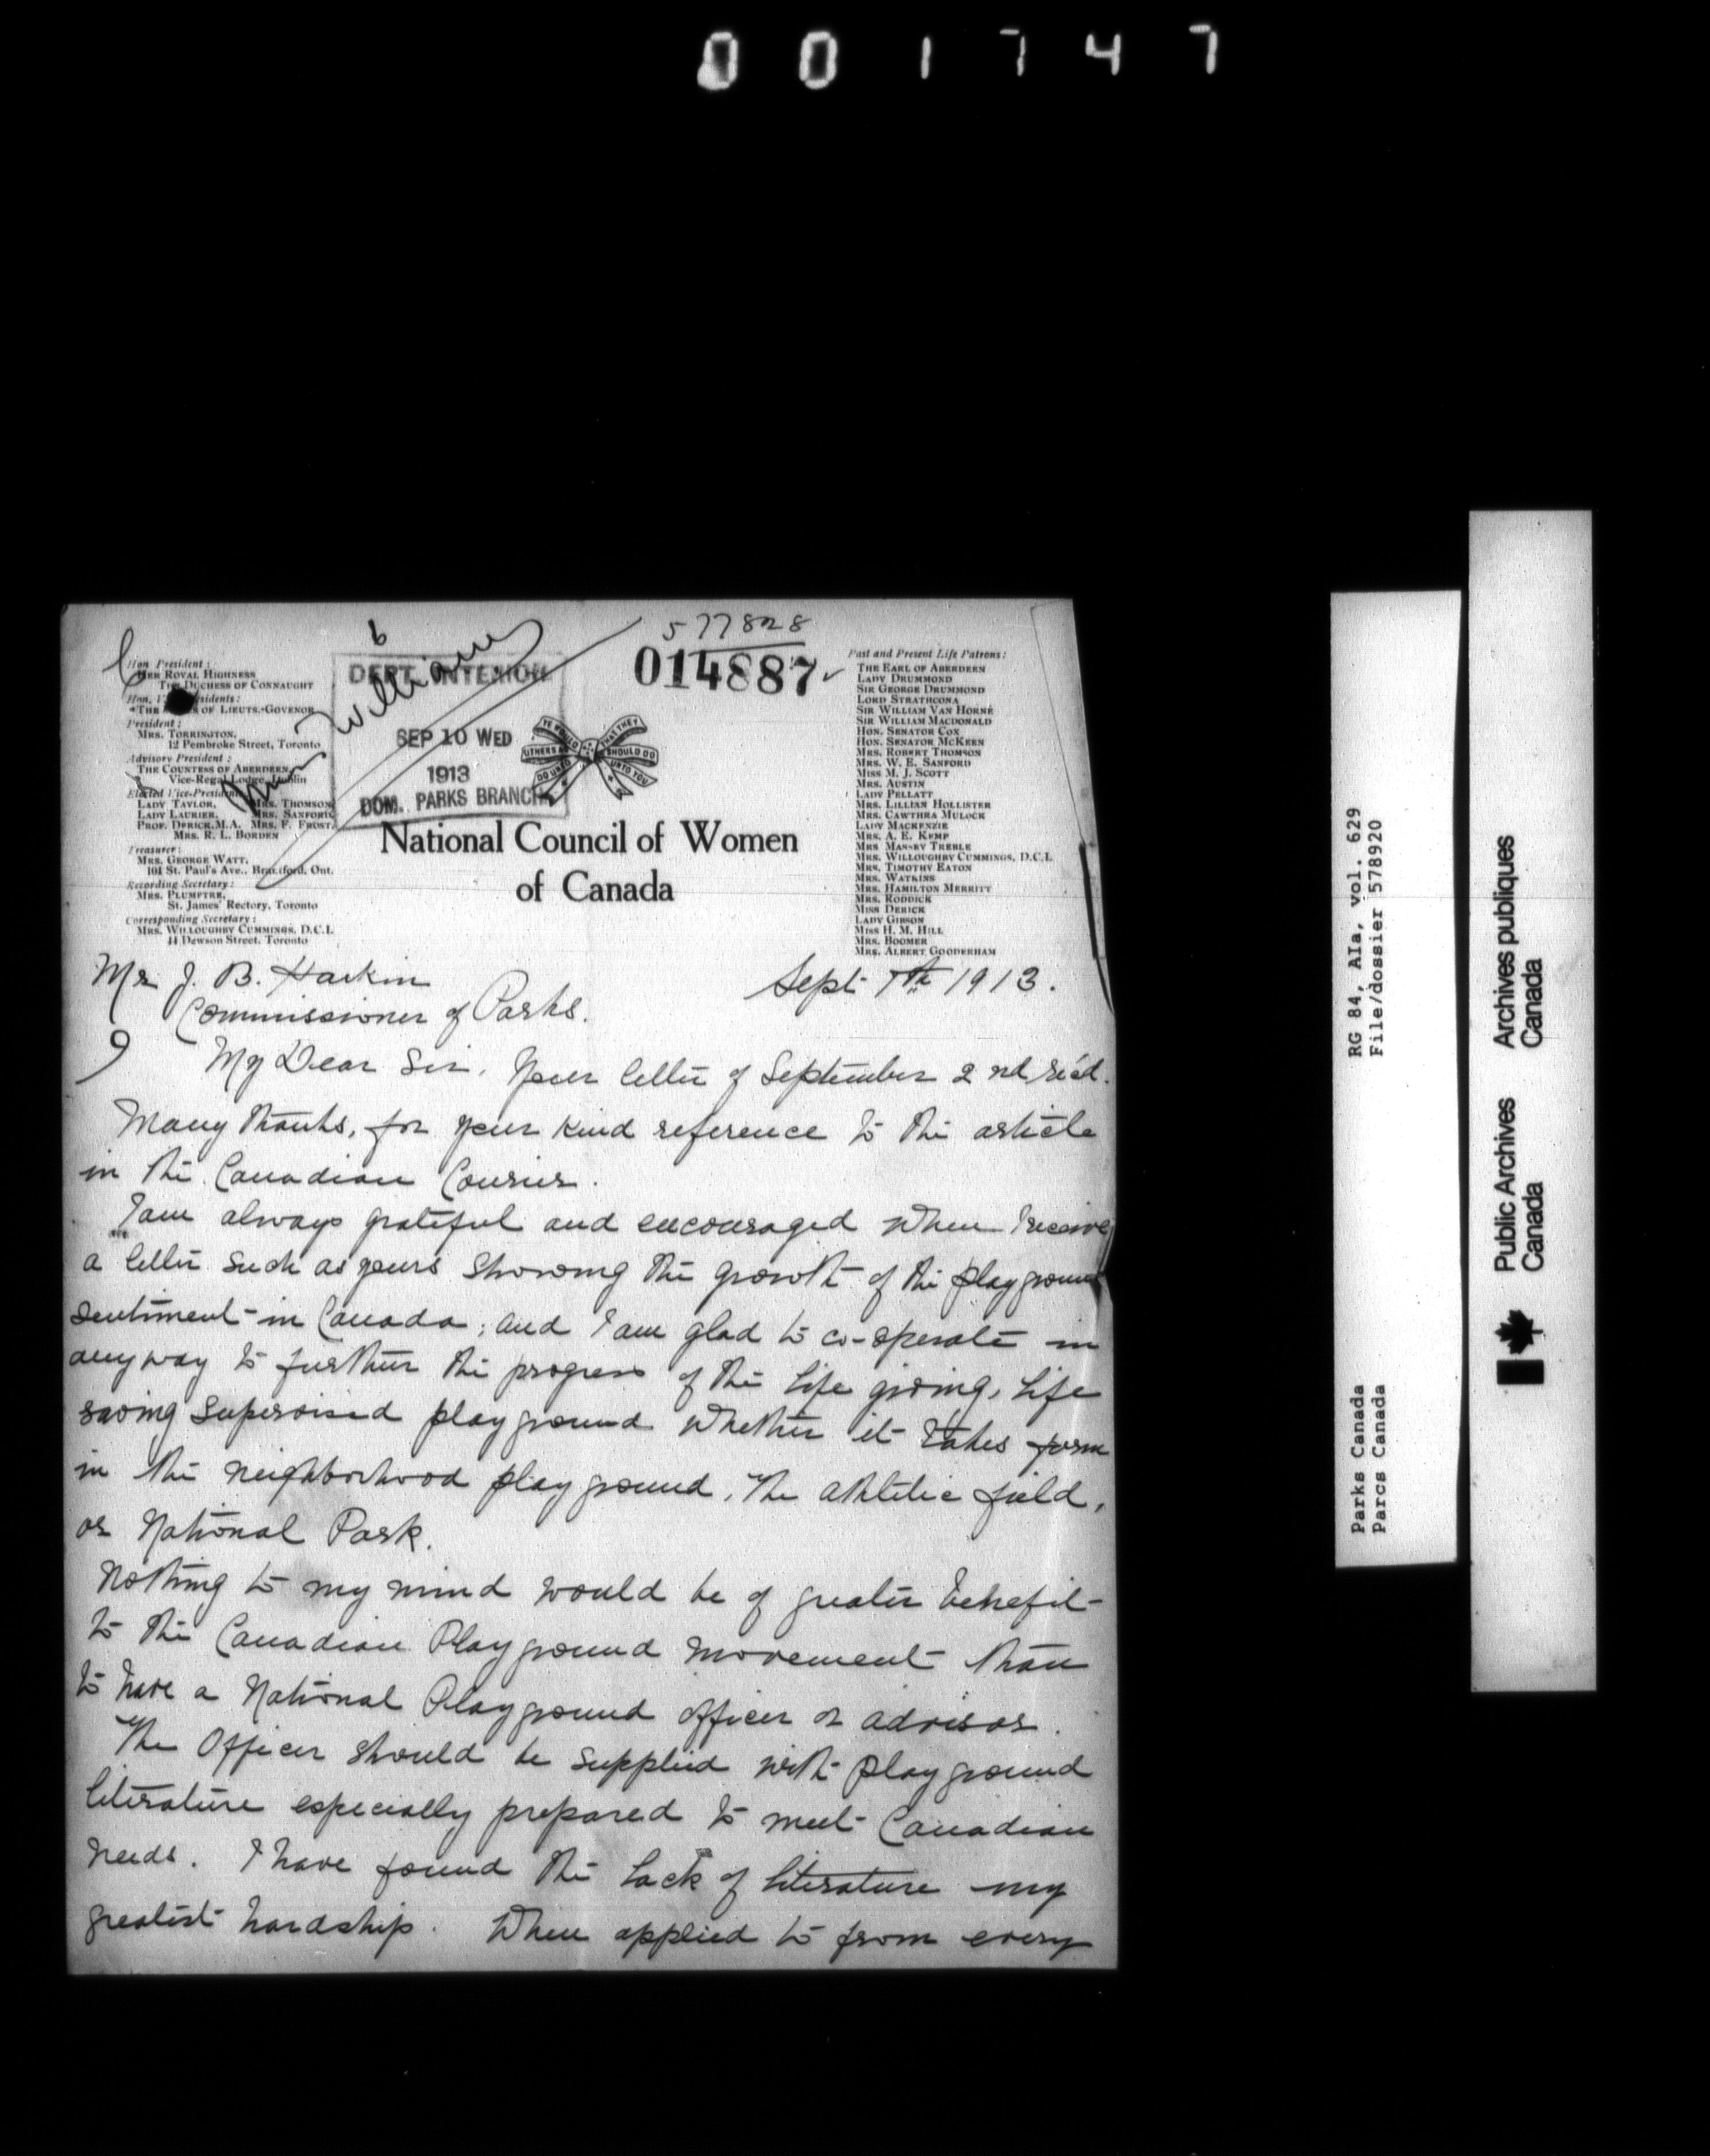 001747
577828
014887
6
DEPT. INTERIOR
SEP 10 WED
1913
DOM. PARKS BRANCH
Williams
Hon. President:
HER ROYAL HIGHNESS
THE DUCHESS OF CONNAUGHT
OF LIEUTS.-GOVENOR
President:
MRS. TORRINGTON,
12 Pembroke Street, Toronto
Advisory President:
THE COUNTESS OF ABERDEEN,
Vice-Regal Lodge, Dublin
Elected Vice-Presidents
LADY TAYLOR, MRS. THOMSON
LADY LAURIER, MRS. SANFORD
PROF. DERICK, M.A. MRS. F. FROST,
MRS. R. L. BORDEN
Treasurer:
MRS. GEORGE WATT,
101 St. Paul's Ave., Brantford, Ont.
Recording Secretary:
MRS. PLUMPTRE,
St. James' Rectory, Toronto
Corresponding Secretary:
MRS. WILLOUGHBY CUMMINGS, D.C.L
44 Dewson Street, Toronto
DO UNTO OTHERS AS YE WOULD THAT THEY SHOULD DO UNTO YOU
National Council of Women
of Canada
Past and Present Life Patrons:
THE EARL OF ABERDEEN
LADY DRUMMOND
SIR GEORGE DRUMMOND
LORD STRATHCONA
SIR WILLIAM VAN HORNE
SIR WILLIAM MACDONALD
HON. SENATOR COX
HON. SENATOR MCKEEN
MRS. ROBERT THOMSON
MRS. W. E. SANFORD
MISS M. J. SCOTT
MRS. AUSTIN
LADY PELLATT
MRS. LILLIAN HOLLISTER
MRS. CAWTHRA MULOCK
LADY MACKENZIE
MRS. A. E. KEMP
MRS MASSEY TREBLE
MRS. WILLOUGHBY CUMMINGS, D.C.L
MRS. TIMOTHY EATON
MRS. WATKINS
MRS. HAMILTON MERRITT
MRS. RODDICK
MISS DERICK
LADY GIBSON
MISS H. M. HILL
MRS. BOOMER
MRS. ALBERT GOODERHAM
Mr J. B. Harkin
Sept 7th 1913.
Commissioner of Parks.
My Dear Sir, Your letter of September 2nd rec'd.
Many thanks, for your kind reference to the article
in the Canadian Courier.
I am always grateful and encouraged when I receive
a letter such as yours showing the growth of the playground
sentiment in Canada; and I am glad to co-operate in
anyway to further the progress of the life giving, life
saving supervised playground whether it takes form
in the neighborhood playground, the athletic field,
or National Park.
Nothing to my mind would be of greater benefit
to the Canadian Playground movement than
to have a National Playground officer or advisor.
The Officer should be supplied with playground
literature especially prepared to meet Canadian
needs. I have found the lack of literature my
greatest hardship. When applied to from every
RG 84, A1a, vol. 629
File/dossier 578920
Parks Canada
Parcs Canada
Public Archives Archives publiques
Canada Canada